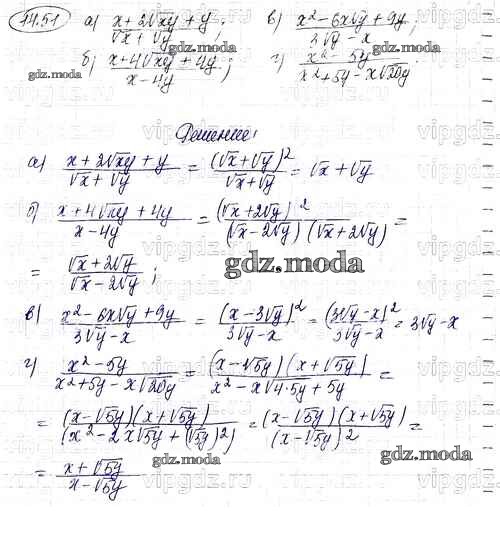 14.51 а) (x + 2√xy + y)/(√x + √y); в) (x² - 6x√y + 9y)/(3√y - x);
б) (x + 4√xy + 4y)/(x - 4y); г) (x² - 5y)/(x² + 5y - x√20y).
gdz.moda gdz.moda
Решение:
а) (x + 2√xy + y)/(√x + √y) = (√x + √y)²/(√x + √y) = √x + √y
б) (x + 4√xy + 4y)/(x - 4y) = (√x + 2√y)²/((√x - 2√y)(√x + 2√y)) =
= (√x + 2√y)/(√x - 2√y);
gdz.moda
в) (x² - 6x√y + 9y)/(3√y - x) = (x - 3√y)²/(3√y - x) = (3√y - x)²/(3√y - x) = 3√y - x
г) (x² - 5y)/(x² + 5y - x√20y) = (x - √5y)(x + √5y)/(x² - x√4·5y + 5y) =
= (x - √5y)(x + √5y)/(x² - 2x√5y + (√5y)²) = (x - √5y)(x + √5y)/(x - √5y)² =
gdz.moda gdz.moda
= (x + √5y)/(x - √5y)